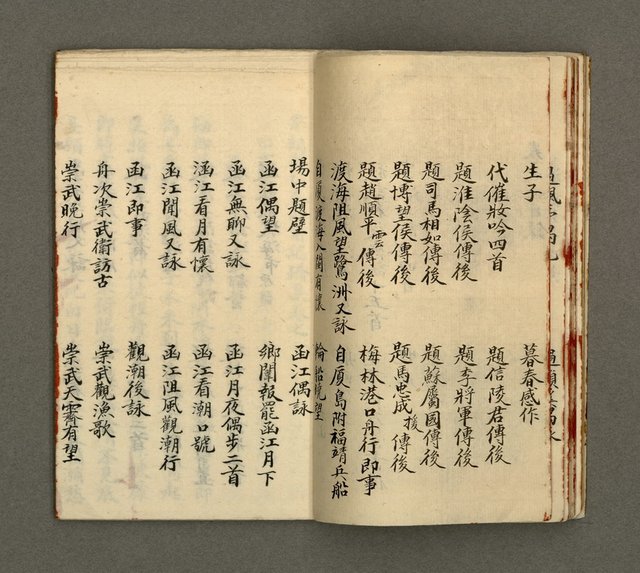 生子
暮春感作
代催妝吟四首
題信陵君傳後
題淮陰侯傳後
題李將軍傳後
題司馬相如傳後
題蘇屬國傳後
題博望侯傳後
題馬忠成援傳後
題趙順平雲傳後
梅林港口舟行即事
渡海阻風望鷺洲又詠
自厦島附福靖兵船
自厦渡海入閩有懷
場中題壁
函江偶詠
函江偶望
鄉闈報罷函江月下
函江無聊又詠
函江月夜偶步二首
涵江看月有懷
函江看潮口號
函江聞風又詠
函江阻風觀潮行
函江即事
觀潮後詠
舟次崇武衛訪古
崇武觀漁歌
崇武晚行
崇武天霽有望